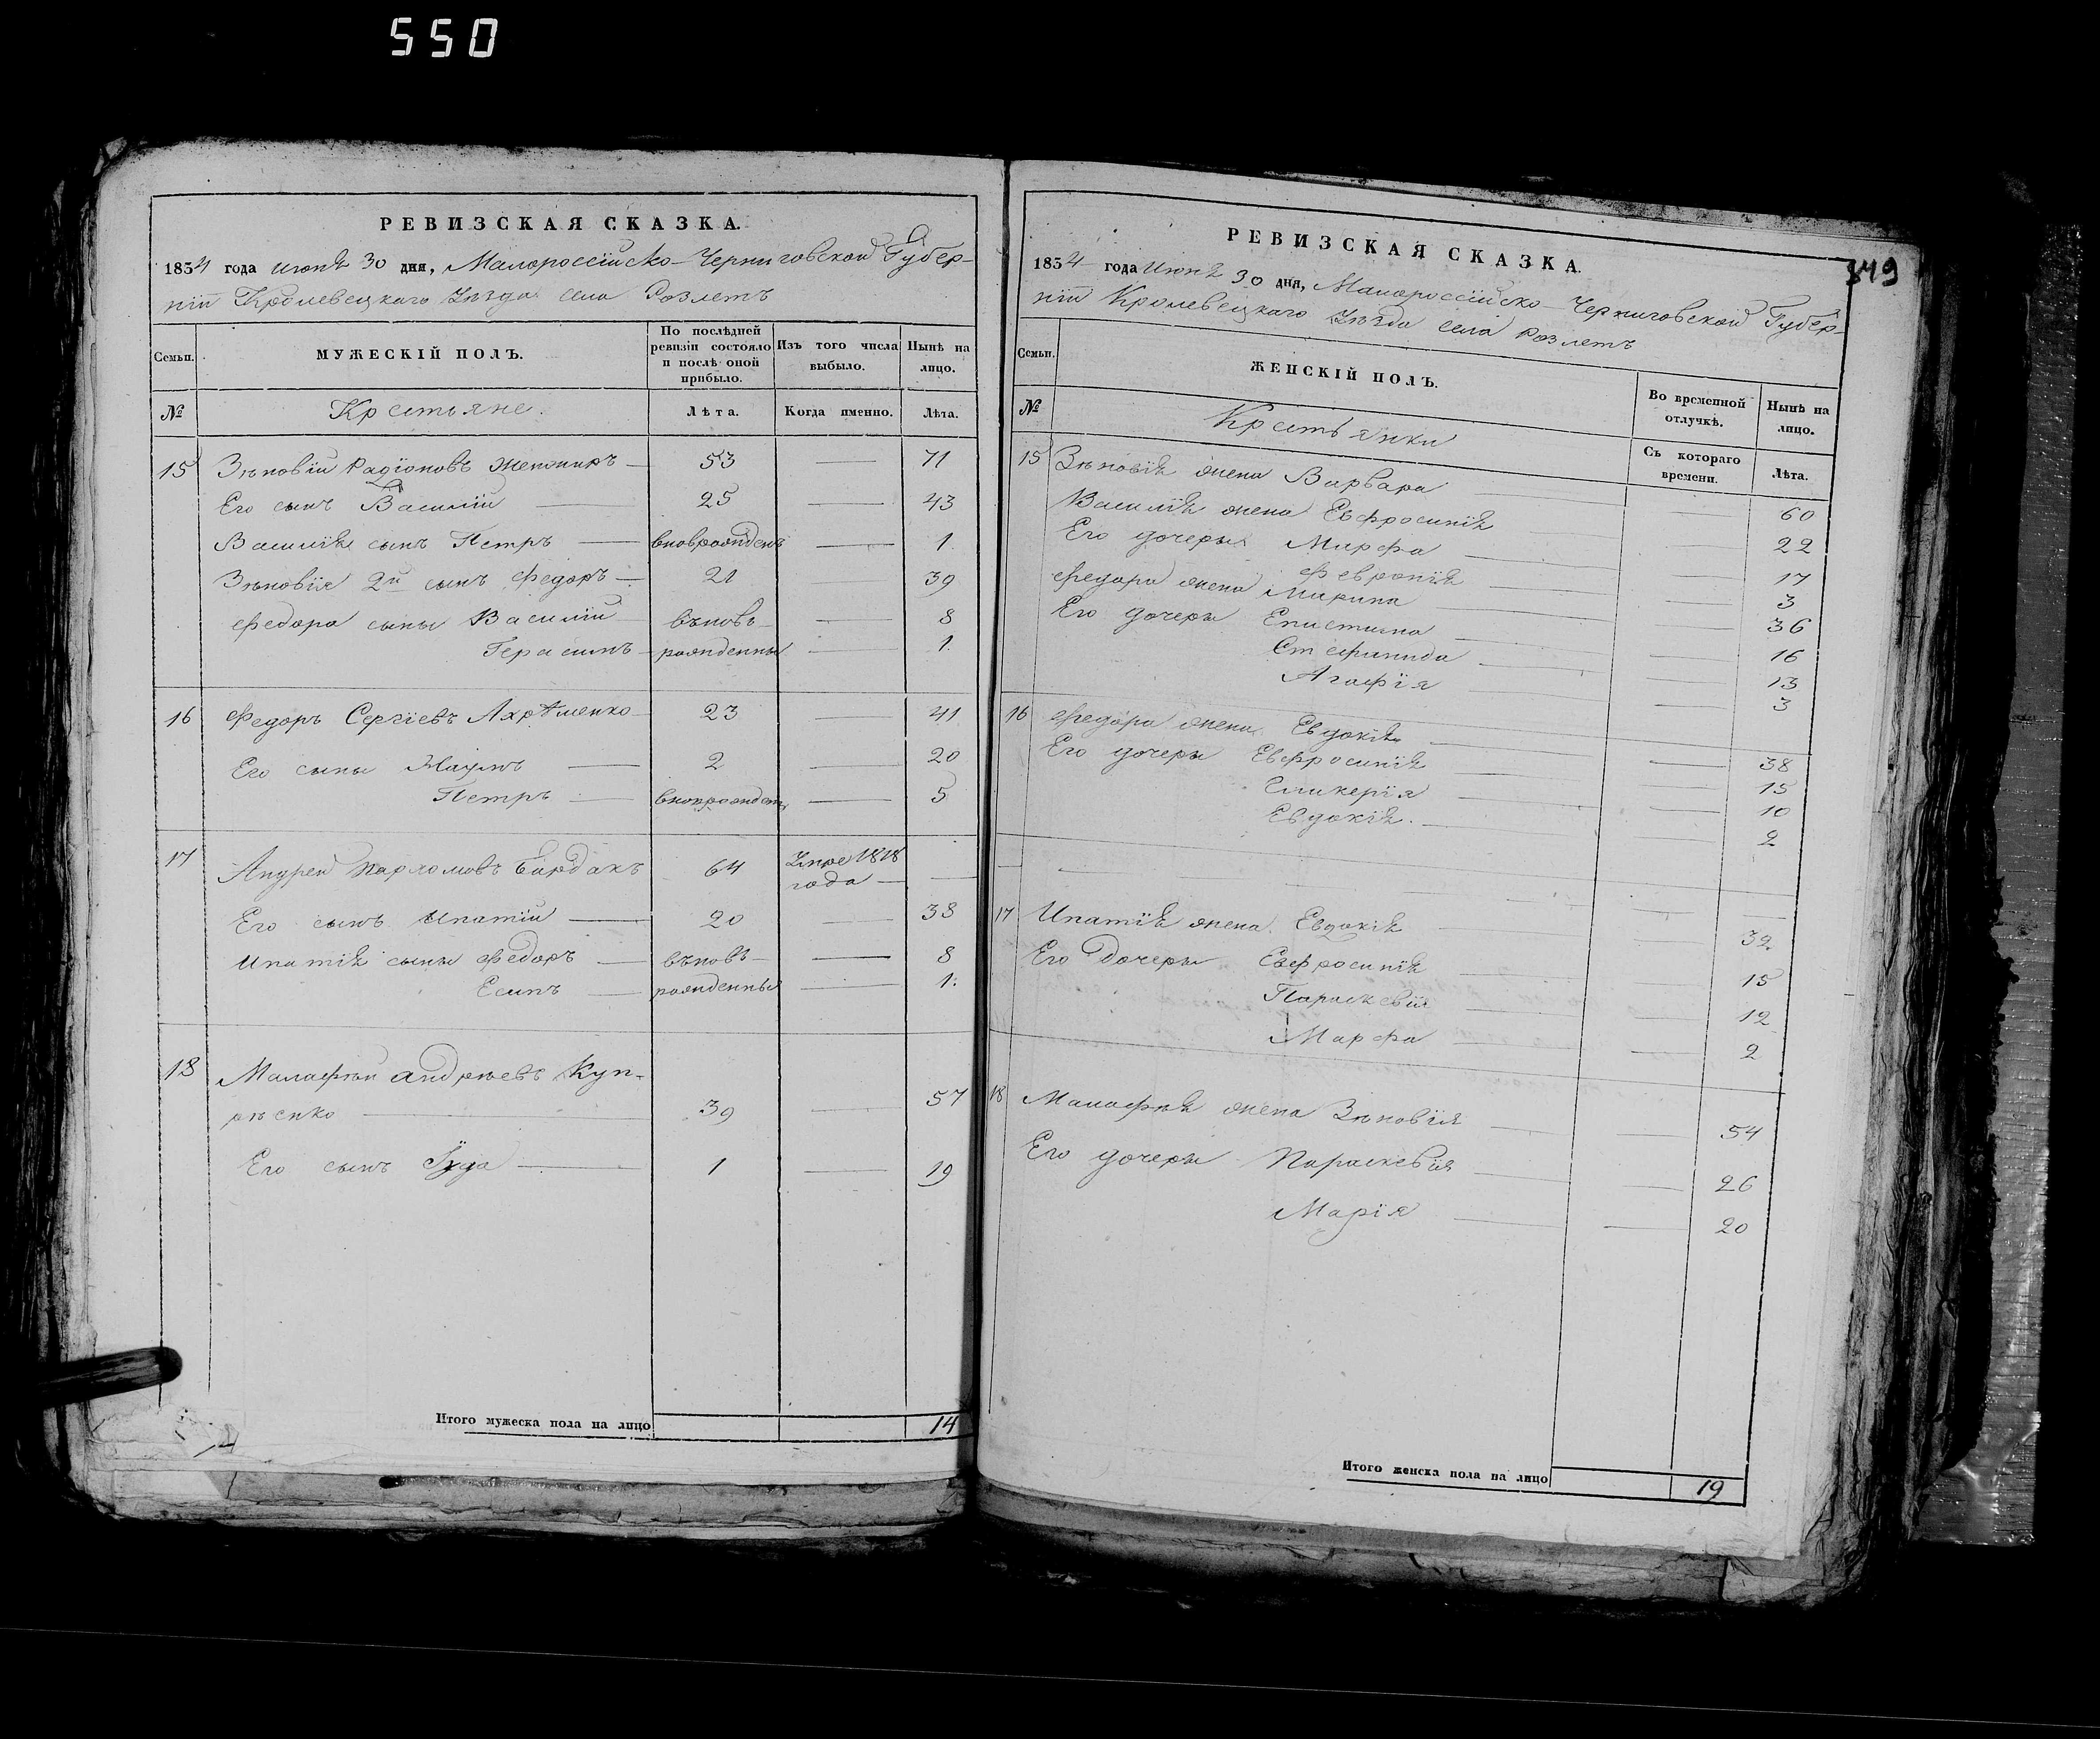 550
РЕВИЗСКАЯ СКАЗКА.
1834 года июня 30 дня, Малороссійско-Черниговской Губер-
ніи Кролевецкаго уѣзда села Розлетъ
Семьи.
МУЖЕСКІЙ ПОЛЪ.
По послѣдней ревизіи состояло и послѣ оной прибыло.
Изъ того числа выбыло.
Нынѣ на лицо.
№
Крестьяне.
Лѣта.
Когда именно.
Лѣта.
15 Зѣновій Радіоновъ — 53 — 71
Его сынъ Василій — 25 — 43
Василія сынъ Петръ — вноврожденъ — 1.
Зѣновія 2й сынъ Федоръ — 21 39
Федора сыны Василій въновь- — 8
Герасимъ — рожденны — 1.
16 Федоръ Сергіевъ Ахрѣменко 23 — 41
Его сыны Наумъ — 2 — 20
Петръ — вноврожден — 5
17 Андрей Пархомовъ Бардакъ 64 Умре 1818 года — —
Его сынъ Ипатій — 20 — 38
Ипатія сыны Федоръ — въновь- — 8
Есипъ — рожденны — 1.
18 Малафѣй Андрѣевъ Куп-
рѣенко — 39 — 57
Его сынъ Іуда — 1 — 19
Итого мужеска пола на лицо 14
349
РЕВИЗСКАЯ СКАЗКА.
1834 года Июня 30 дня, Малороссійско-Черниговской Губер-
ніи Кролевецкаго уѣзда села Розлетъ
Семьи.
ЖЕНСКІЙ ПОЛЪ.
Во временной отлучкѣ.
Нынѣ на лицо.
№
Крестьянки
Съ котораго времени.
Лѣта.
15 Зѣновія жена Варвара — — 60
Василія жена Евфросинія — 22
Его дочеры Марфа — — 17
Февронія — — 3
Федора жена Марина — — 36
Его дочеры Епистима — — 16
Стефанида — — 13
Агафія — — 3
16 Федора жена Евдокія — — 38
Его дочеры Евфросинія — — 15
Гликерія — — 10
Евдокія. — — 2
17 Ипатія жена Евдокія — — 32
Его дочеры Евфросинія — — 15
Параскевія — — 12
Марфа — — 2
18 Малафѣя жена Зѣновія — — 54
Его дочеры Параскевія — — 26
Марія — — 20
Итого женска пола на лицо 19